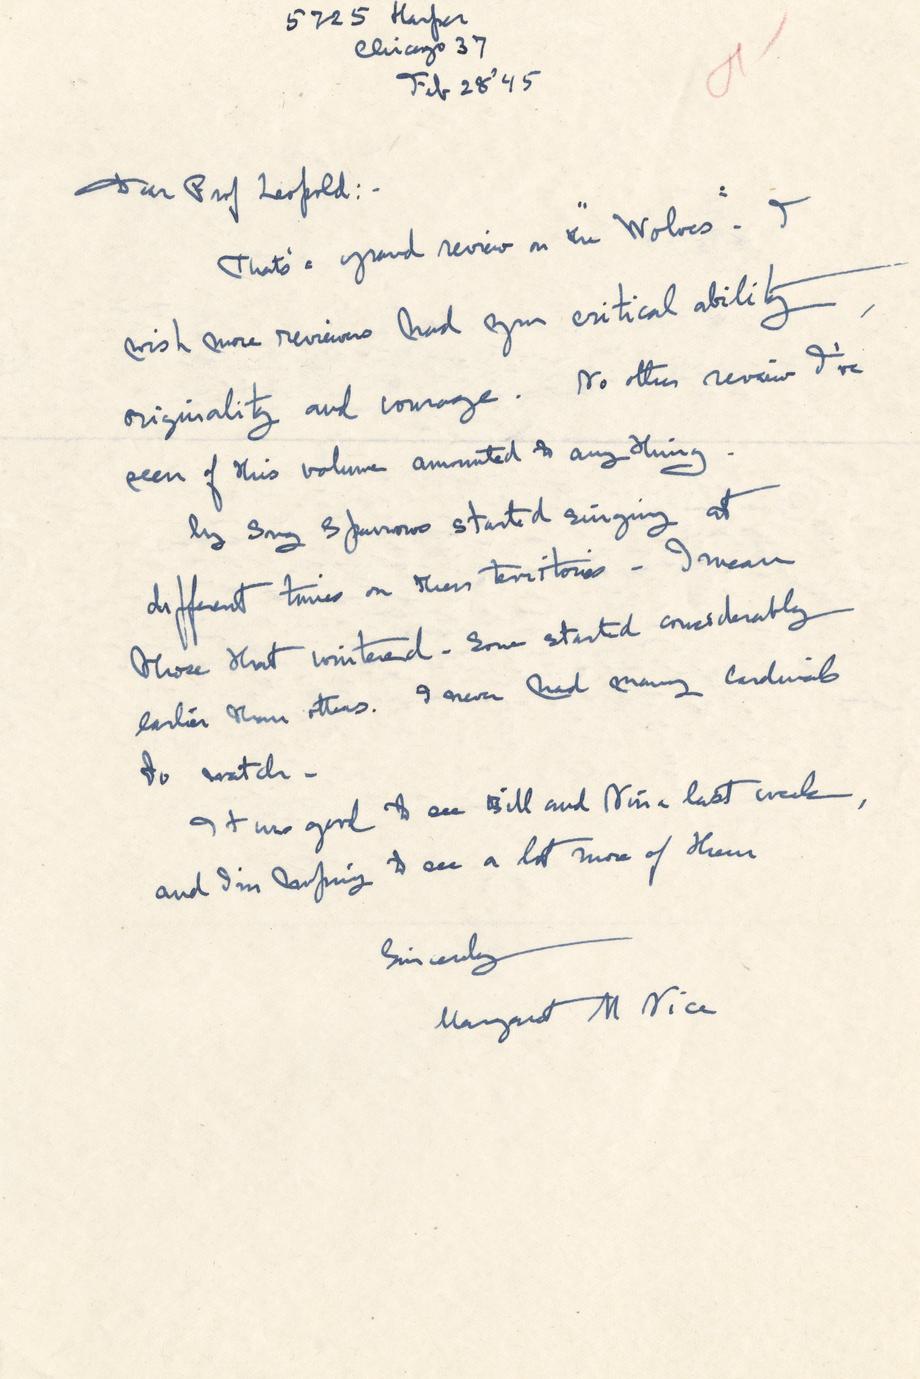 5725 Harper
Chicago 37
Feb 28 '45
Dear Prof Leopold:-
That's a grand review on "the Wolves" - I
wish more reviewers had your critical ability,
originality and courage. No other review I've
seen of this volume amounted to anything -
My Song Sparrows started singing at
different times on their territories - I mean
those that wintered - Some started considerably
earlier than others. I never had many Cardinals
to watch -
It was good to see Bill and Nina last week,
and I'm hoping to see a lot more of them
Sincerely
Margaret M Nice